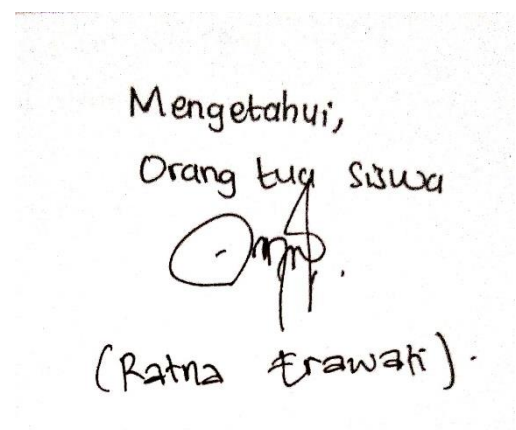 Mengetahui,
Orang tua siswa
(Ratna Erawati).